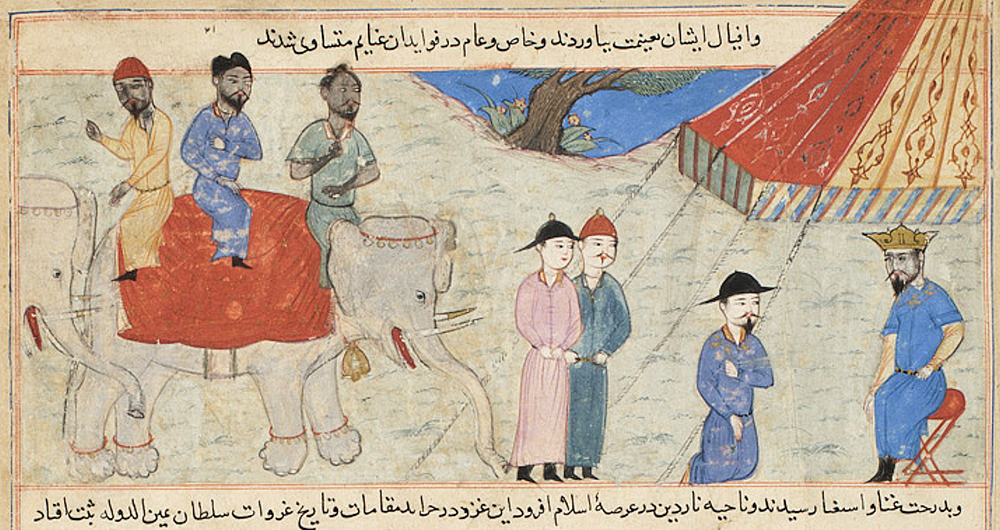 و افیال ایشان بغنیمت بیاوردند و خاص و عام در فواید ان غنایم متساوی شدند
و بدرجت غنا و استغنا رسیدند و ناحیه ناردین در عرصهٔ اسلام افزود این غزو در جراید مقامات و تاریخ غزوات سلطان یمین الدوله ثبت افتاد